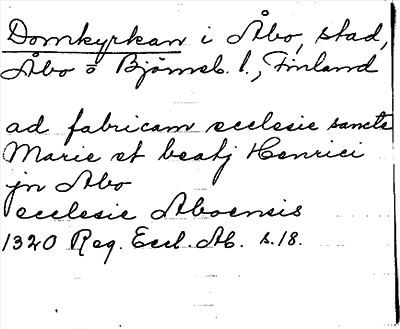 Domkyrkan i Åbo, stad,
Åbo o Björneb. l., Finland
ad fabricam ecclesie sancte
Marie et beatj Henrici
jn Abo
ecclesie Aboensis
1320 Reg. Eccl. Ab. s. 18.